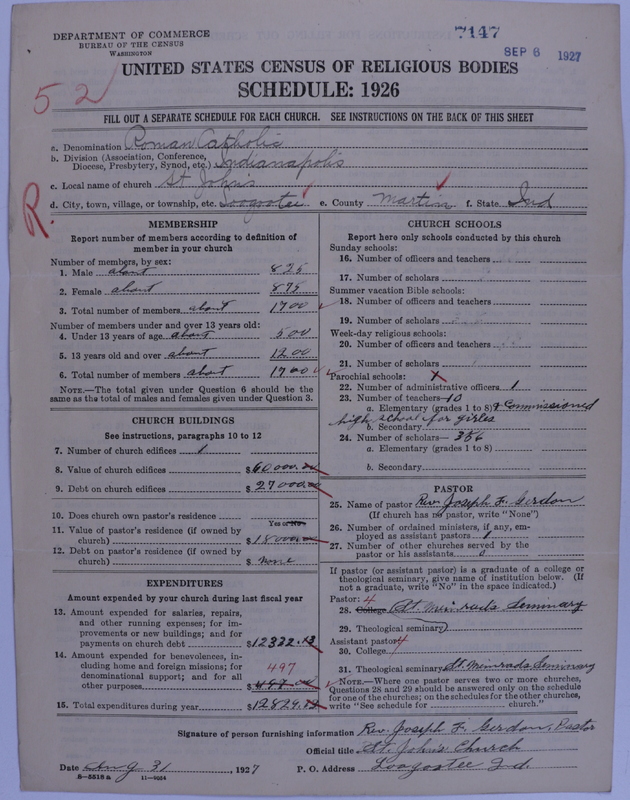 7147
SEP 6 1927
DEPARTMENT OF COMMERCE
BUREAU OF THE CENSUS
WASHINGTON
UNITED STATES CENSUS OF RELIGIOUS BODIES
SCHEDULE: 1926
52
FILL OUT A SEPARATE SCHEDULE FOR EACH CHURCH. SEE INSTRUCTIONS ON THE BACK OF THIS SHEET
a. Denomination Roman Catholic
b. Division (Association, Conference, Diocese, Presbytery, Synod, etc.) Indianapolis
c. Local name of church St. John's
d. City, town, village, or township, etc. Loogootee e. County Martin f. State Ind
R.
MEMBERSHIP
Report number of members according to definition of
member in your church
Number of members, by sex:
1. Male about 825
2. Female about 875
3. Total number of members about 1700
Number of members under and over 13 years old:
4. Under 13 years of age about 500
5. 13 years old and over about 1200
6. Total number of members about 1700
NOTE.—The total given under Question 6 should be the
same as the total of males and females given under Question 3.
CHURCH BUILDINGS
See instructions, paragraphs 10 to 12
7. Number of church edifices 1
8. Value of church edifices $60000.00
9. Debt on church edifices $27000.00
10. Does church own pastor's residence
Yes or No
11. Value of pastor's residence (if owned by
church) $18000.00
12. Debt on pastor's residence (if owned by
church) $ none
EXPENDITURES
Amount expended by your church during last fiscal year
13. Amount expended for salaries, repairs,
and other running expenses; for im-
provements or new buildings; and for
payments on church debt $12332.13
14. Amount expended for benevolences, in-
cluding home and foreign missions; for
denominational support; and for all
497
other purposes $497.00
15. Total expenditures during year $12829.13
CHURCH SCHOOLS
Report here only schools conducted by this church
Sunday schools:
16. Number of officers and teachers
17. Number of scholars
Summer vacation Bible schools:
18. Number of officers and teachers
19. Number of scholars
Week-day religious schools:
20. Number of officers and teachers
21. Number of scholars
Parochial schools: X
22. Number of administrative officers 1
23. Number of teachers—10
a. Elementary (grades 1 to 8) & Commissioned
high school for girles
b. Secondary
24. Number of scholars— 356
a. Elementary (grades 1 to 8)
b. Secondary
PASTOR
25. Name of pastor Rev. Joseph F. Gerdon
(If church has no pastor, write "None")
26. Number of ordained ministers, if any, em-
ployed as assistant pastors 1
27. Number of other churches served by the
pastor or his assistants 0
If pastor (or assistant pastor) is a graduate of a college or
theological seminary, give name of institution below. (If
not a graduate, write "No" in the space indicated.)
Pastor: 4
28. College St. Meinrads Seminary
29. Theological seminary
Assistant pastor: 4
30. College
31. Theological seminary St. Meinrads Seminary
NOTE.—Where one pastor serves two or more churches,
Questions 28 and 29 should be answered only on the schedule
for one of the churches; on the schedules for the other churches,
write "See schedule for church."
Signature of person furnishing information Rev. Joseph F. Gerdon, Pastor
Official title St. John's Church
Date Aug 31, 1927 P. O. Address Loogootee Ind.
8—5518 a 11—9024